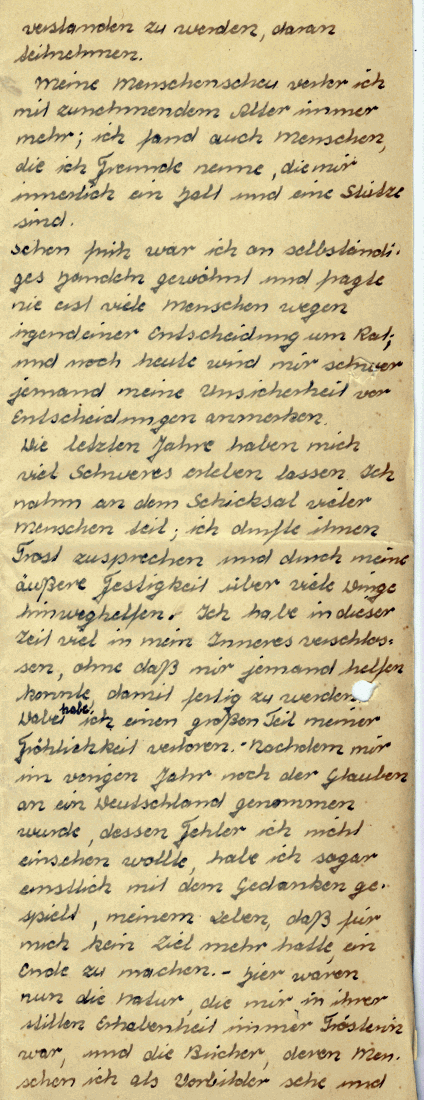 verstanden zu werden, daran
teilnehmen.
Meine Menschenscheu verlor ich
mit zunehmendem Alter immer
mehr; ich fand auch Menschen,
die ich Freunde nenne, die mir
innerlich ein Halt und eine Stütze
sind.
Schon früh war ich an selbständi-
ges Handeln gewöhnt und fragte
nie erst viele Menschen wegen
irgendeiner Entscheidung um Rat;
und noch heute wird mir schwer
jemand meine Unsicherheit vor
Entscheidungen anmerken.
Die letzten Jahre haben mich
viel Schweres erleben lassen. Ich
nahm an dem Schicksal vieler
Menschen teil; ich durfte ihnen
Trost zusprechen und durch meine
äußere Festigkeit über viele Dinge
hinweghelfen. Ich habe in dieser
Zeit viel in mein Inneres verschlos-
sen, ohne daß mir jemand helfen
konnte, damit fertig zu werden.
Dabei habe ich einen großen Teil meiner
Fröhlichkeit verloren. - Nachdem mir
im vorigen Jahr noch der Glauben
an ein Deutschland genommen
wurde, dessen Fehler ich nicht
einsehen wollte, habe ich sogar
ernstlich mit dem Gedanken ge-
spielt, meinem Leben, daß für
mich kein Ziel mehr hatte, ein
Ende zu machen. - Hier waren
nun die Natur, die mir in ihrer
stillen Erhabenheit immer Trösterin
war, und die Bücher, deren Men-
schen ich als Vorbilder sehe und